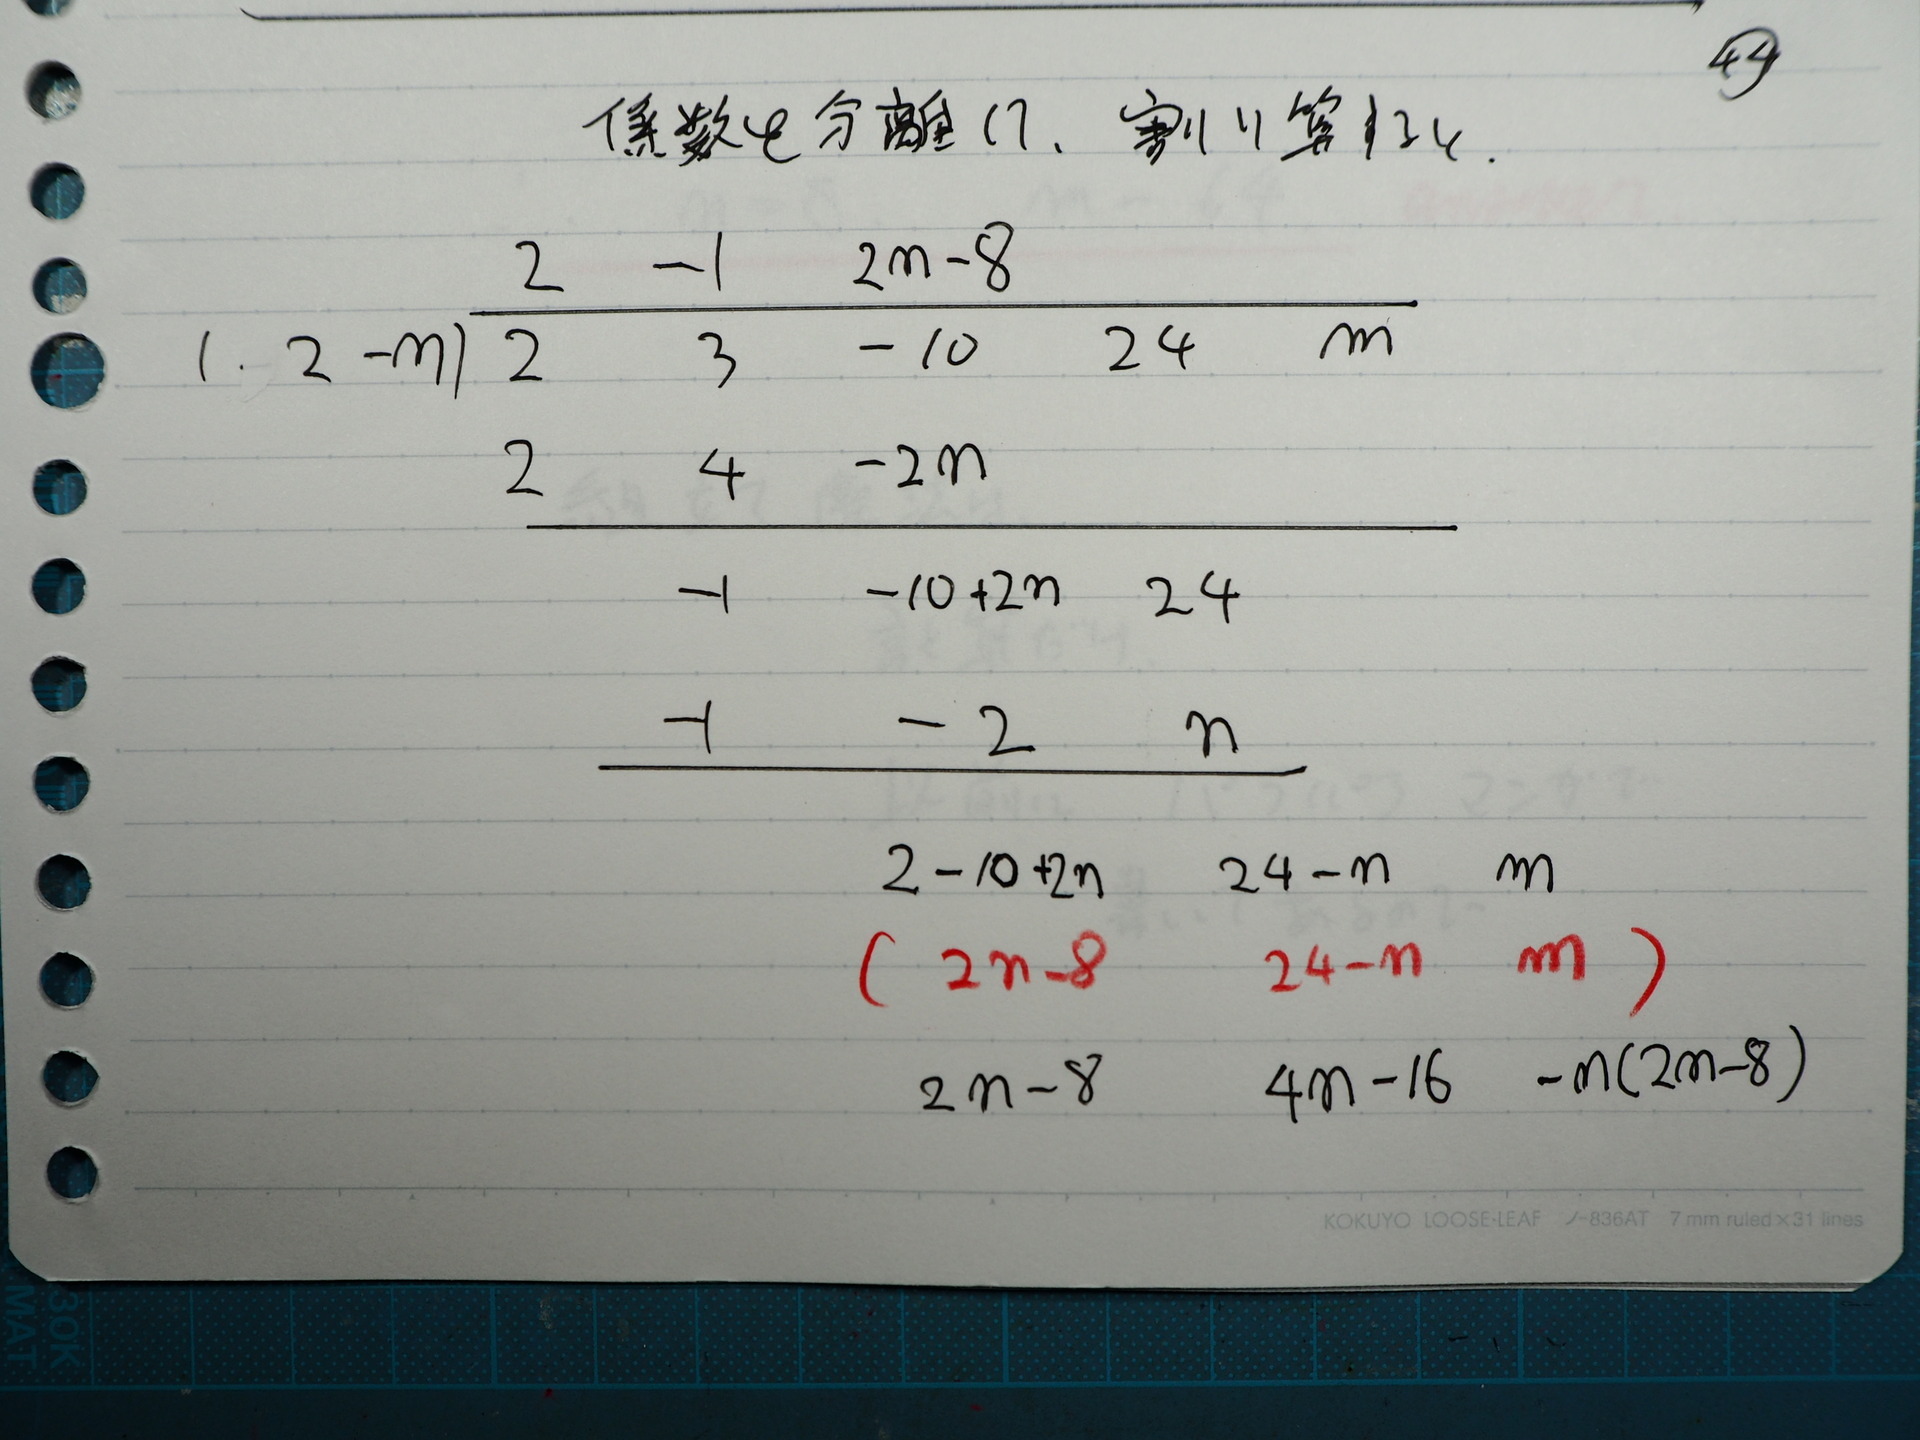 44
係数を分離して、割り算すると.
2 -1 2n-8
1. 2 -n) 2 3 -10 24 m
2 4 -2n
-1 -10+2n 24
-1 -2 n
2-10+2n 24-n m
( 2n-8 24-n m )
2n-8 4n-16 -n(2n-8)
KOKUYO LOOSE-LEAF ノ-836AT 7mm ruled×31 lines
30K
MAT